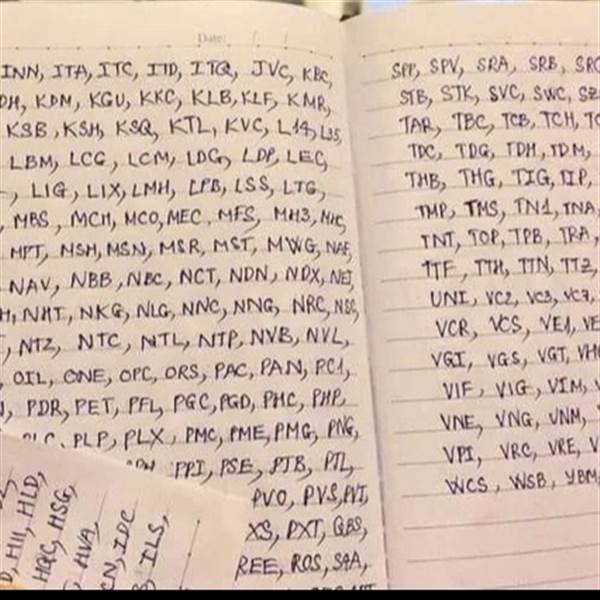 Date: / /
INN, ITA, ITC, ITD, ITQ, JVC, KBC,
DH, KDM, KGU, KKC, KLB, KLF, KMR,
KSB, KSH, KSQ, KTL, KVC, L14, L35,
LBM, LCG, LCM, LDG, LDP, LEC,
, LIG, LIX, LMH, LPB, LSS, LTG,
, MBS, MCH, MCO, MEC, MFS, MH3, MHC,
, MPT, MSH, MSN, MSR, MST, MWG, NAF,
, NAV, NBB, NBC, NCT, NDN, NDX, NET,
H, NHT, NKG, NLG, NNC, NNG, NRC, NSC,
, NTZ, NTC, NTL, NTP, NVB, NVL,
, OIL, ONE, OPC, ORS, PAC, PAN, PC1,
, PDR, PET, PFL, PGC, PGD, PHC, PHP,
PLC, PLP, PLX, PMC, PME, PMG, PNG,
PPI, PSE, PTB, PTL,
PVO, PVS, PVT,
XS, PXT, QBS,
REE, ROS, S4A,
HII, HLD,
HQC, HSG,
HVA,
CN, IDC
ILS,
SPP, SPV, SRA, SRB, SRC
STB, STK, SVC, SWC, SZ
TAR, TBC, TCB, TCH, TC
TDC, TDG, TDH, TDM,
THB, THG, TIG, TIP,
TMP, TMS, TN1, TNA,
TNT, TOP, TPB, TRA,
TTF, TTH, TTN, TTZ
UNI, VC2, VC3, VC7,
VCR, VCS, VE1, VE
VGI, VGS, VGT, VH
VIF, VIG, VIM, V
VNE, VNG, VNM, V
VPI, VRC, VRE, V
WCS, WSB, YBM,